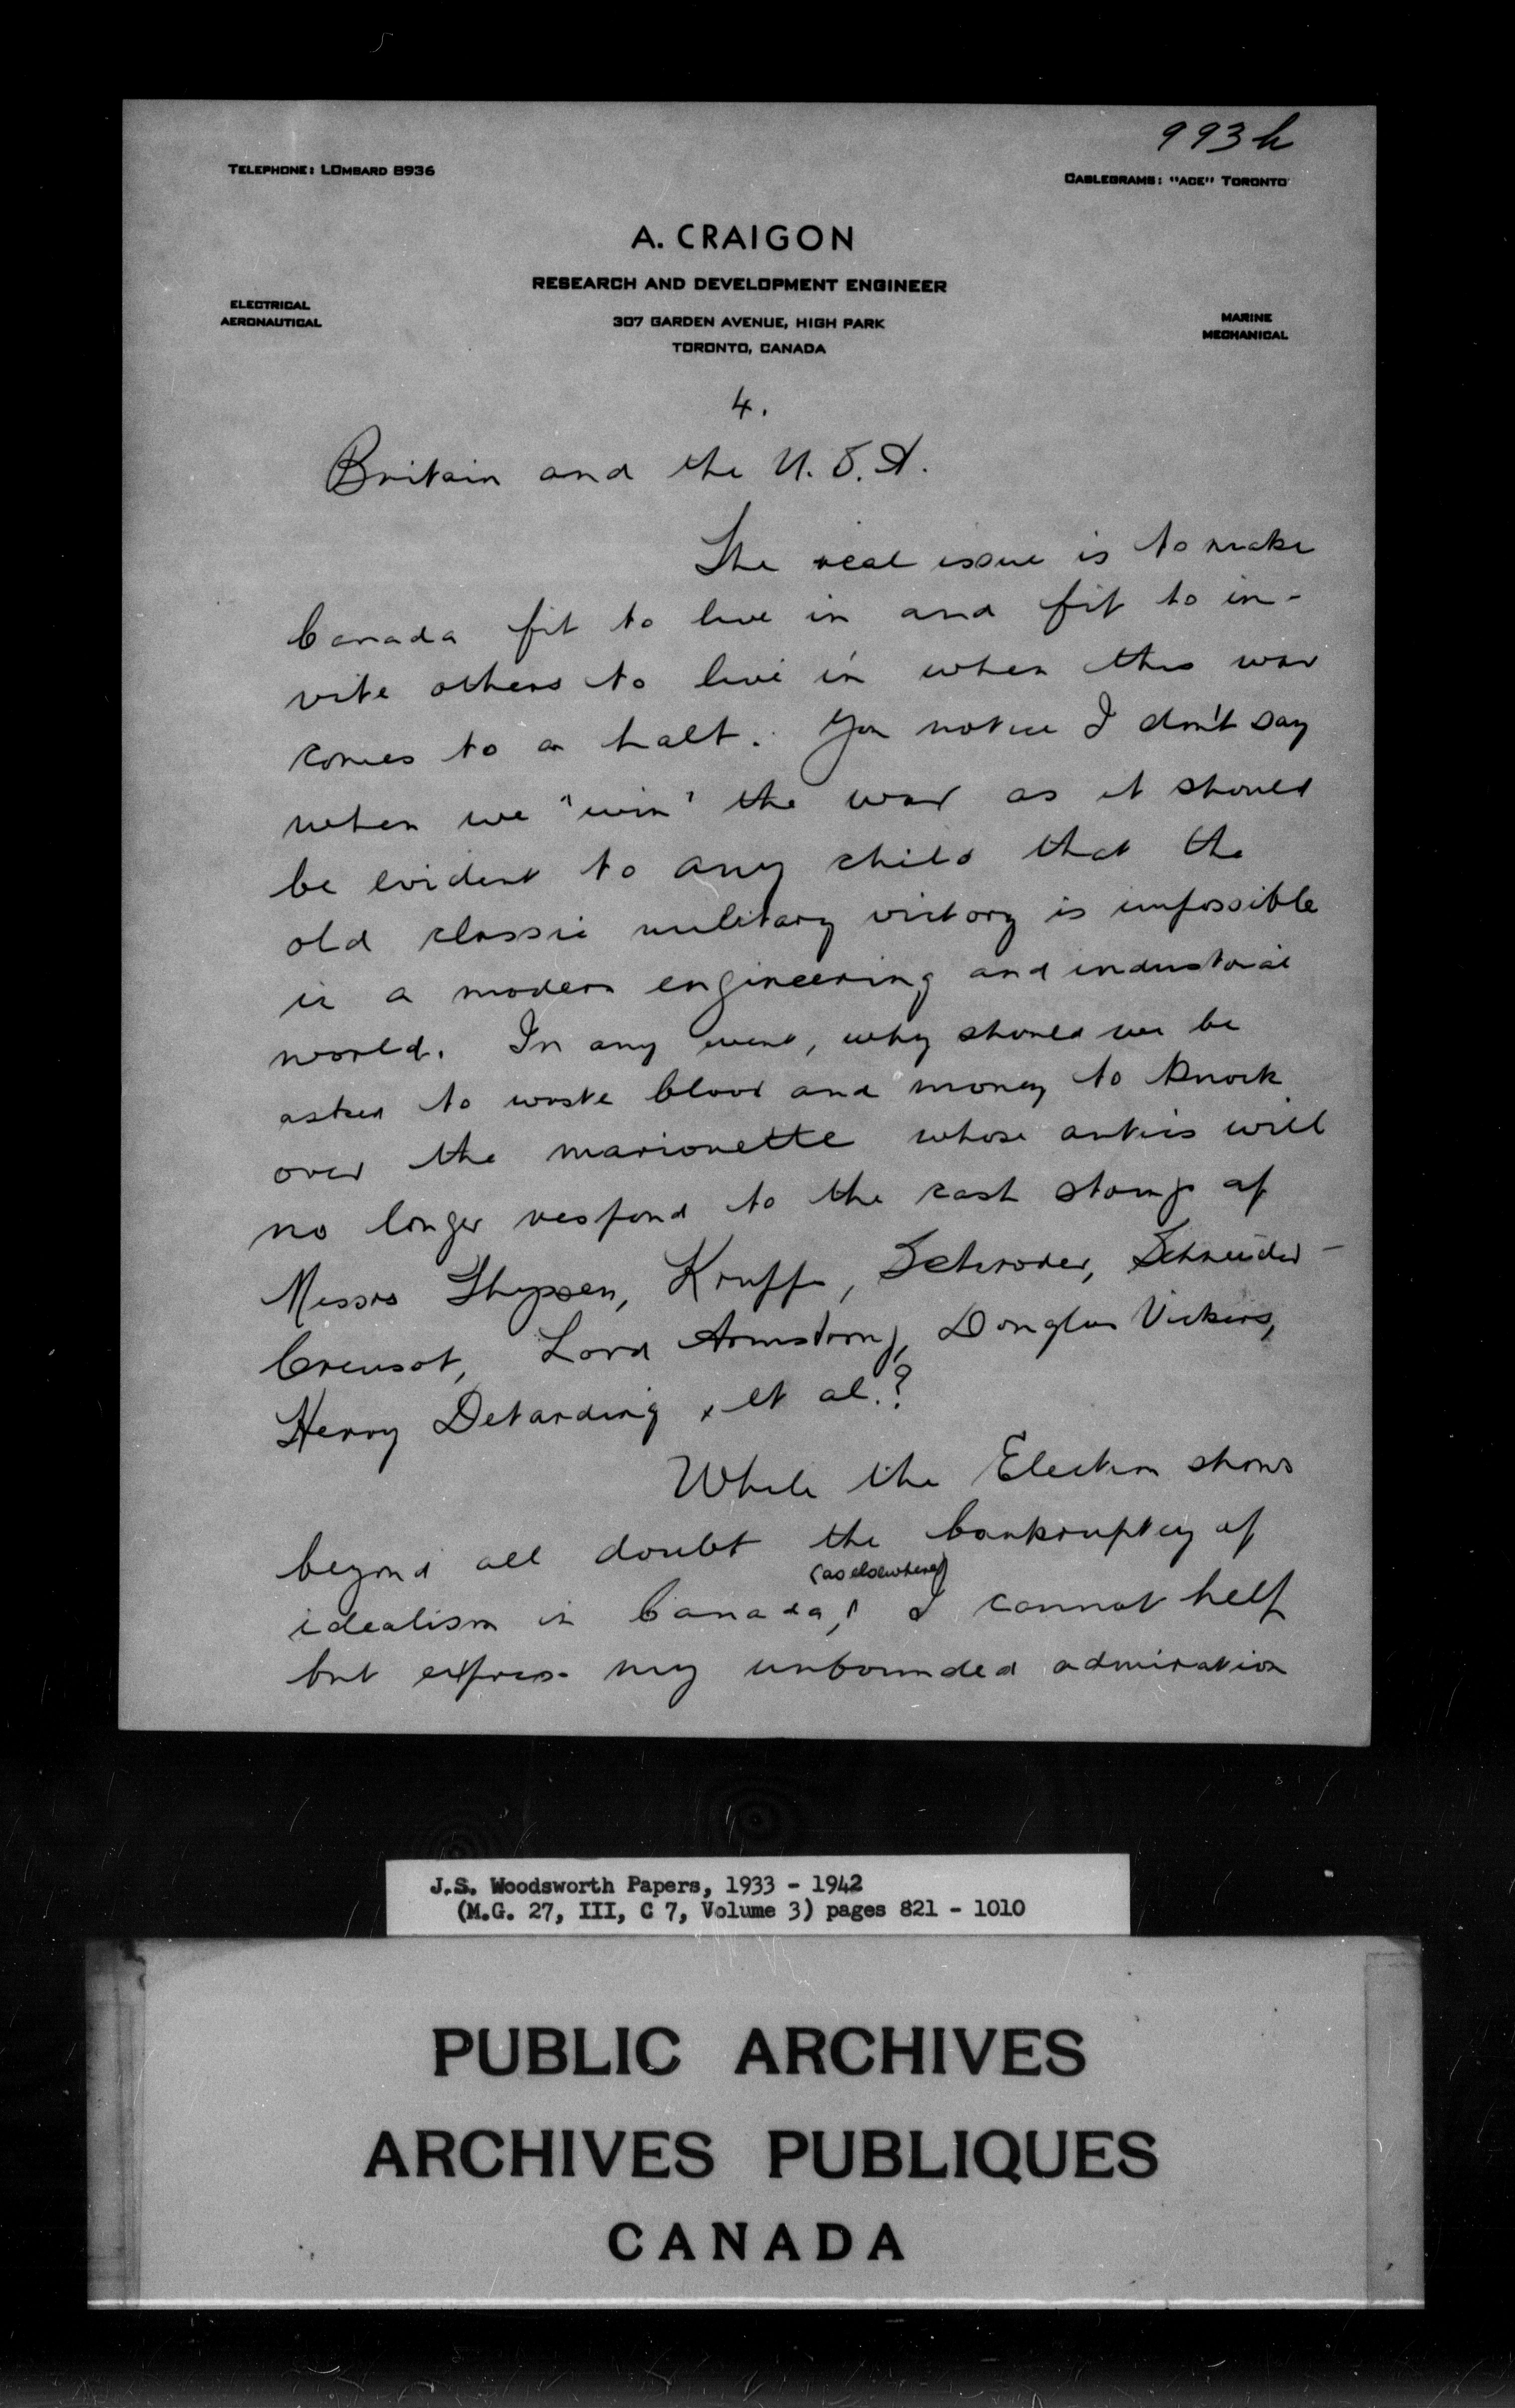 993h
TELEPHONE: LOMBARD 8936
CABLEGRAMS: "ACE" TORONTO
A. CRAIGON
RESEARCH AND DEVELOPMENT ENGINEER
ELECTRICAL
AERONAUTICAL
307 GARDEN AVENUE, HIGH PARK
TORONTO, CANADA
MARINE
MECHANICAL
4.
Britain and the U.S.A.
The real issue is to make
Canada fit to live in and fit to in-
vite others to live in when this war
comes to a halt. You notice I don't say
when we "win" the war as it should
be evident to any child that the
old classic military victory is impossible
in a modern engineering and industrial
world. In any event, why should we be
asked to waste blood and money to knock
over the marionette whose antics will
no longer respond to the cash strings of
Messrs Thyssen, Krupp, Schroder, Schneider-
Creusot, Lord Armstrong, Douglas Vickers,
Henry Detarding, et al.?
While the Election shows
beyond all doubt the bankruptcy of
(as elsewhere)
idealism in Canada, I cannot help
but express my unbounded admiration
J.S. Woodsworth Papers, 1933 - 1942
(M.G. 27, III, C 7, Volume 3) pages 821 - 1010
PUBLIC ARCHIVES
ARCHIVES PUBLIQUES
CANADA